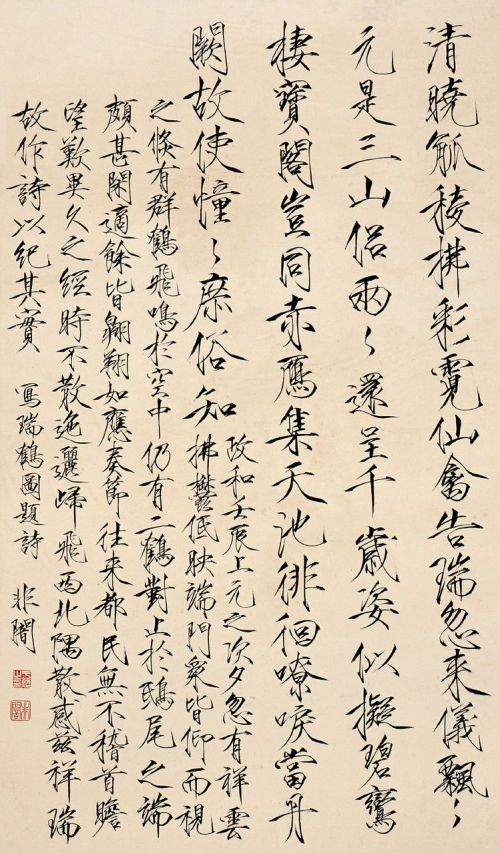 清曉觚稜拂彩霓仙禽告瑞忽來儀飄〻
元是三山侶兩〻還呈千歲姿似擬碧鸞
棲寶閣豈同赤鴈集天池徘徊嘹唳當丹
闕故使憧〻庶俗知
政和壬辰上元之次夕忽有祥雲
拂鬱低映端門衆皆仰而視
之倏有群鶴飛鳴於空中仍有二鶴對止於鴟尾之端
頗甚閑適餘皆翱翔如應奏節往來都民無不稽首瞻
望歎異久之經時不散迤邐歸飛西北隅散感茲祥瑞
故作詩以紀其實 寫瑞鶴圖題詩 非闇